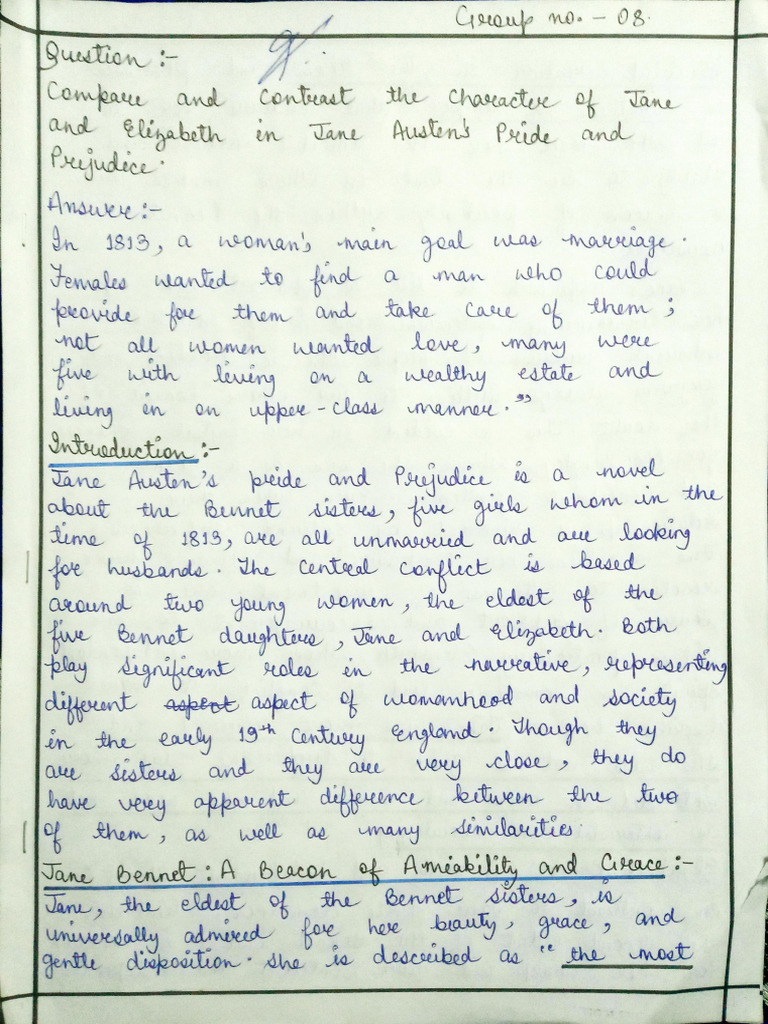 Group no. - 08.
Question :-
Compare and contrast the character of Jane
and Elizabeth in Jane Austen's Pride and
Prejudice.
Answer :-
In 1813, a woman's main goal was marriage.
Females wanted to find a man who could
provide for them and take care of them ;
not all women wanted love, many were
five with living on a wealthy estate and
living in on upper-class manner."
Introduction :-
Jane Austen's pride and Prejudice is a novel
about the Bennet sisters, five girls whom in the
time of 1813, are all unmarried and are looking
for husbands. The central conflict is based
around two young women, the eldest of the
five Bennet daughters, Jane and Elizabeth. Both
play significant roles in the narrative, representing
different aspect aspect of womanhood and society
in the early 19th century England. Though they
are sisters and they are very close, they do
have very apparent difference between the two
of them, as well as many similarities.
Jane Bennet : A Beacon of Amiability and Grace :-
Jane, the eldest of the Bennet sisters, is
universally admired for her beauty, grace, and
gentle disposition. She is described as "the most